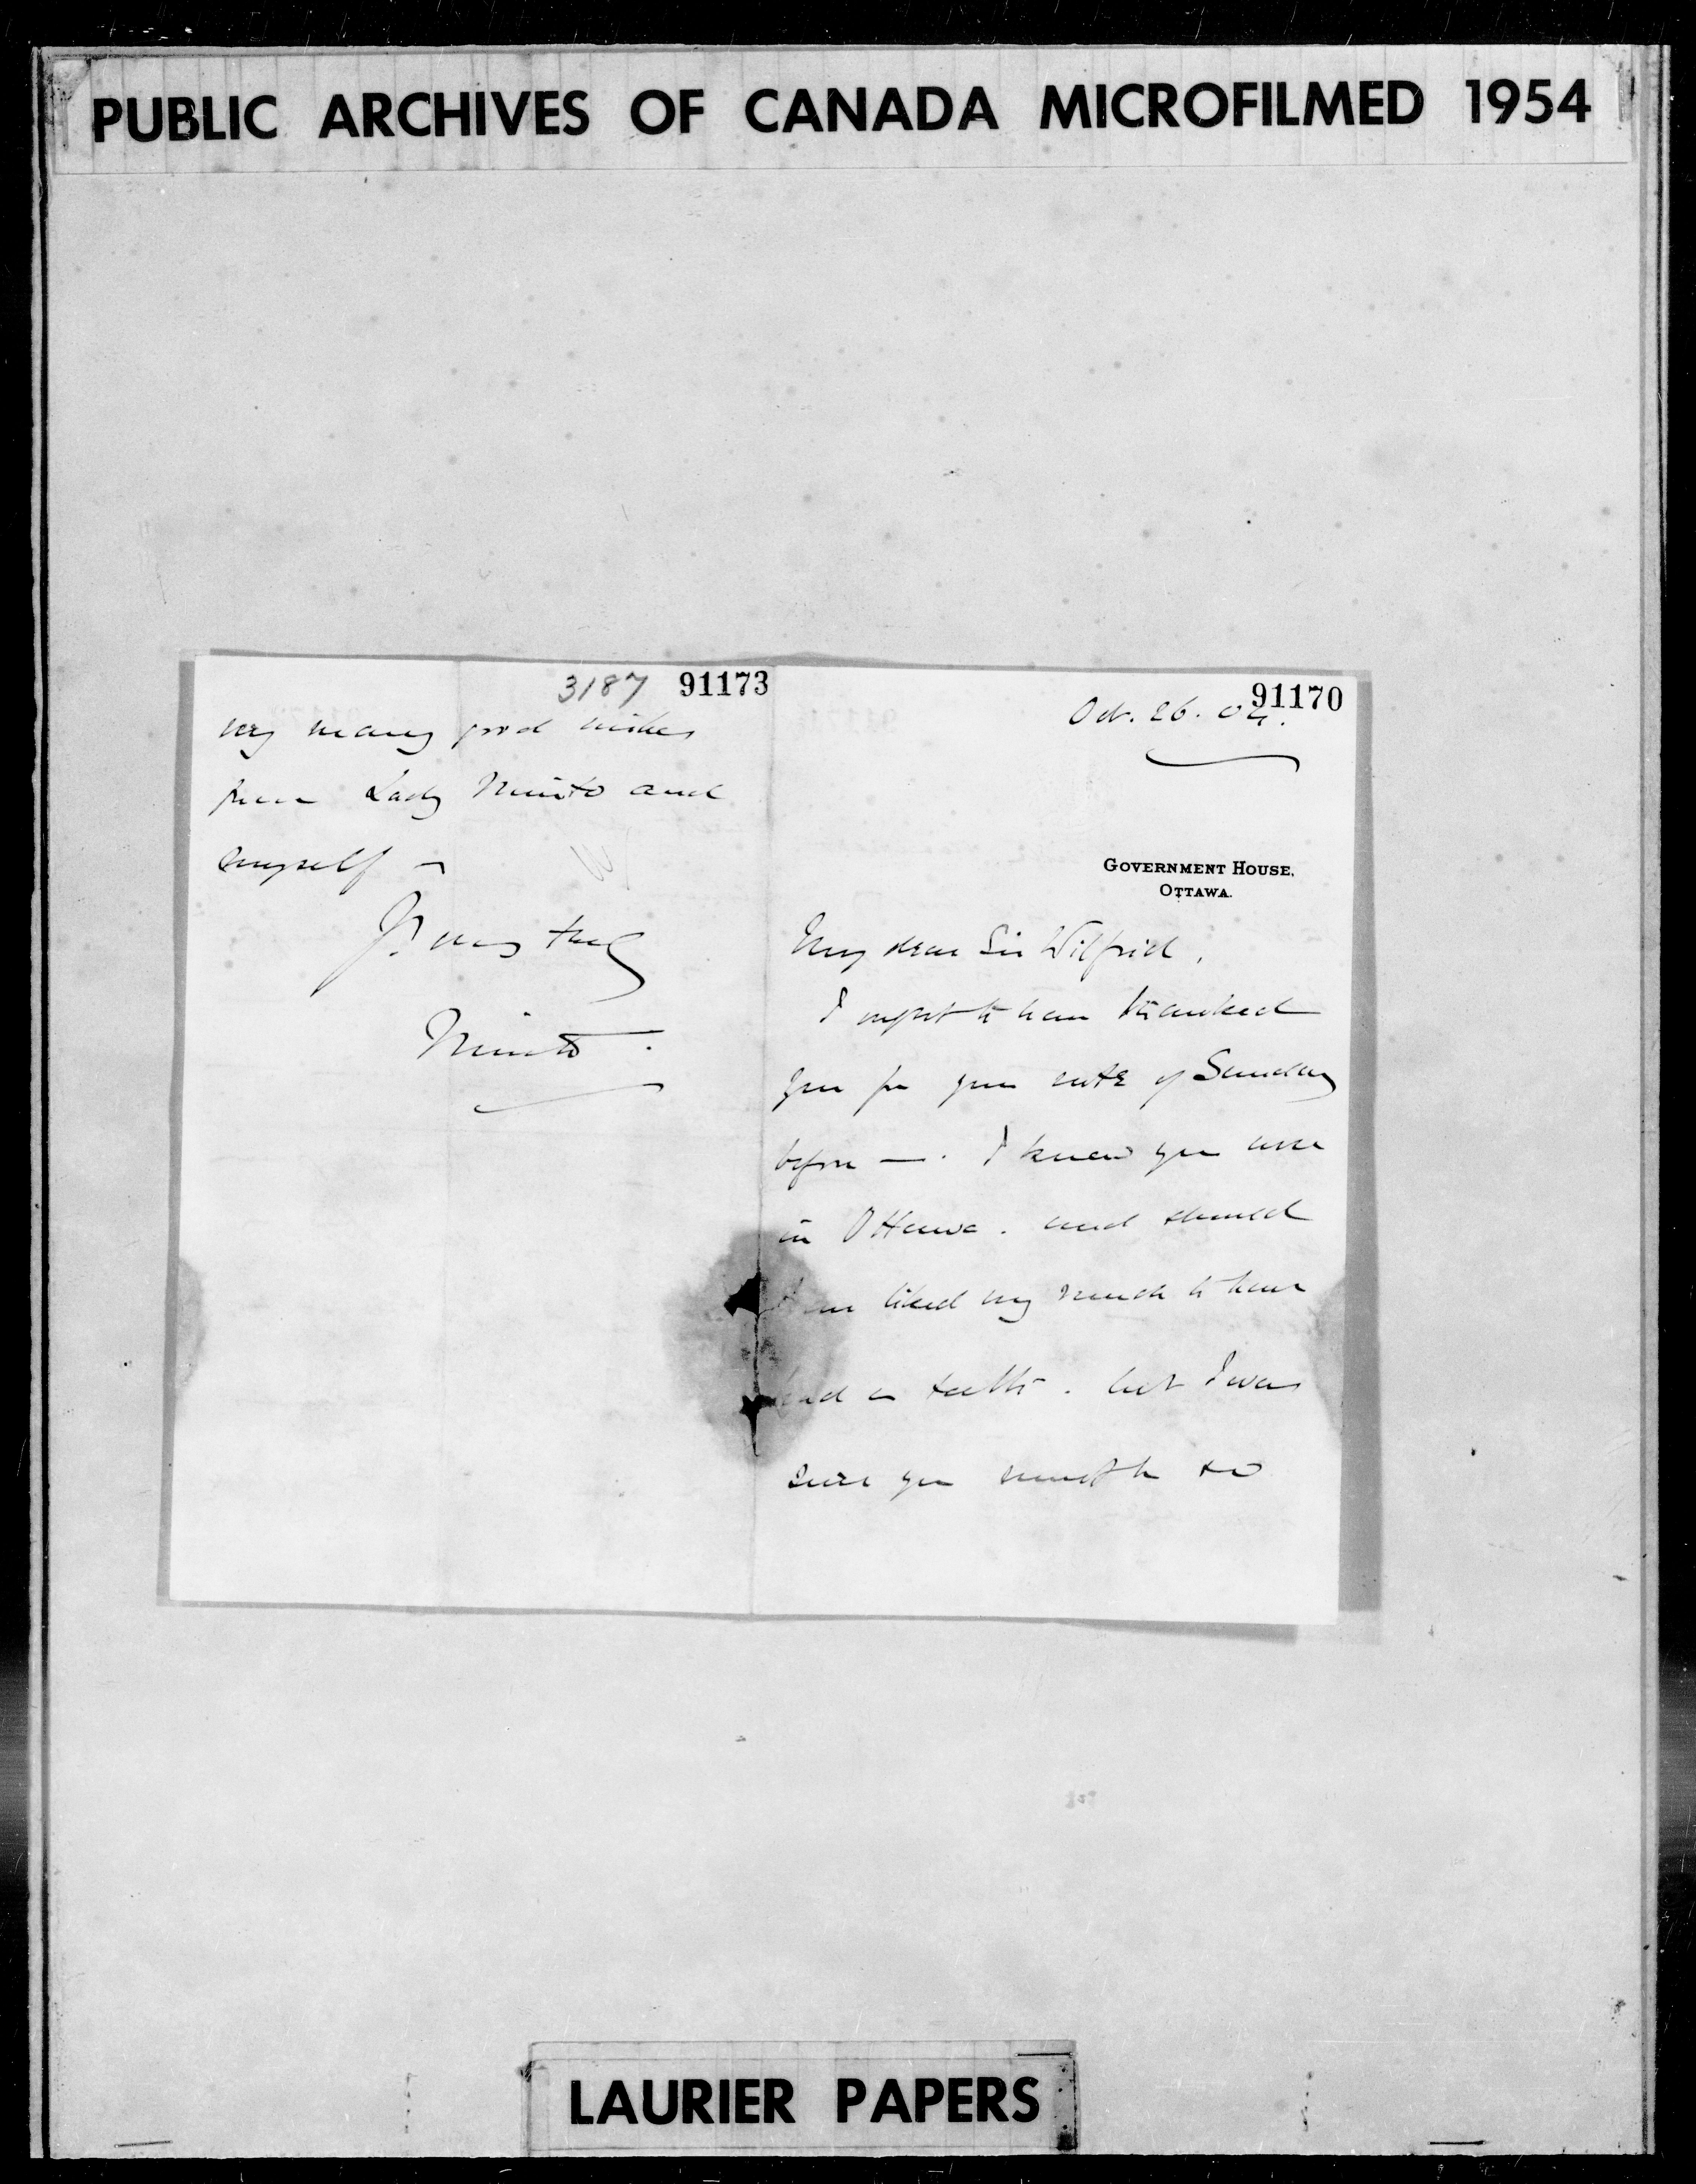 PUBLIC ARCHIVES OF CANADA MICROFILMED 1954
3187 91173
very many good wishes
from Lady Minto and
myself –
Yours truly
Minto.
91170
Oct. 26. 04.
GOVERNMENT HOUSE,
OTTAWA.
My dear Sir Wilfrid,
I ought to have thanked
you for your note of Sunday
before —. I knew you were
in Ottawa. and should
have liked very much to have
had a talk. but I was
sure you must be so
LAURIER PAPERS